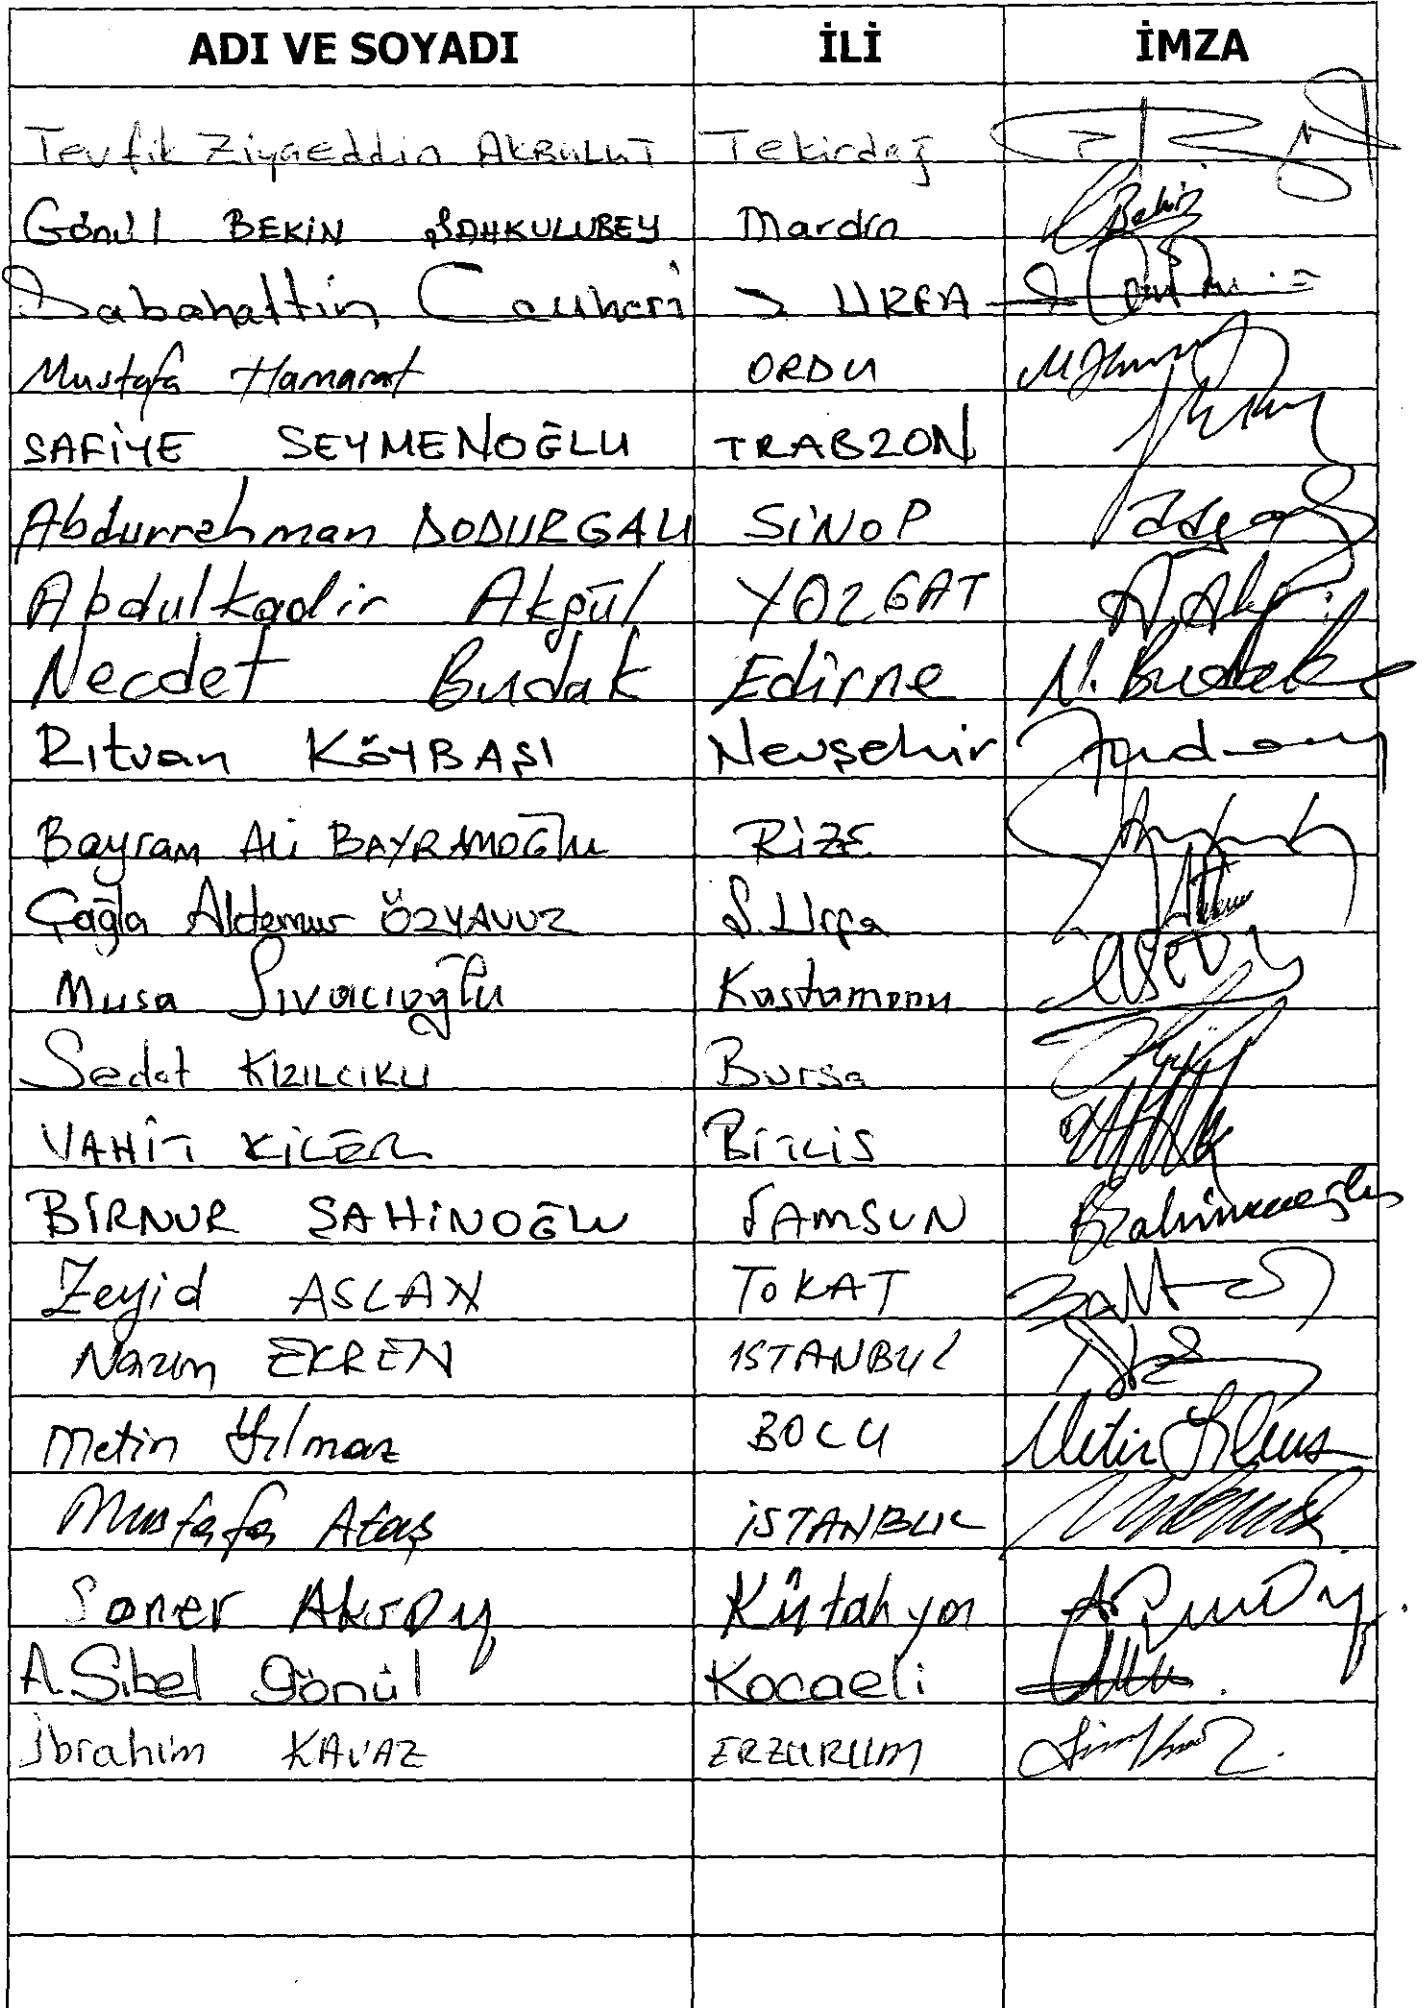 ADI VE SOYADI İLİ İMZA
Tevfik Ziyaeddin AKBULUT Tekirdağ
Gönül BEKİN ŞAHKULUBEY Mardin Bekin
Sabahattin Cevheri Ş URFA
Mustafa Hamarat ORDU
SAFİYE SEYMENOĞLU TRABZON
Abdurrahman DODURGALI SİNOP
Abdulkadir Akgül YOZGAT A. Akgül
Necdet Budak Edirne N. Budak
Rıtvan KÖYBAŞI Nevşehir
Bayram Ali BAYRAMOĞlu RİZE
Çağla Aldemır ÖZYAVUZ Ş.Urfa
Musa Sıvacıoğlu Kastamonu
Sedat KIZILCIKLI Bursa
VAHİT KİLER BİTLİS
BİRNUR ŞAHİNOĞLU SAMSUN BŞahinoğlu
Zeyid ASLAN TOKAT
Nazım EKREN ISTANBUL
Metin Yılmaz BOLU Metin Yılmaz
Mustafa Ataş İSTANBUL
Soner Aksoy Kütahya
A.Sibel Gönül Kocaeli
İbrahim KAVAZ ERZURUM